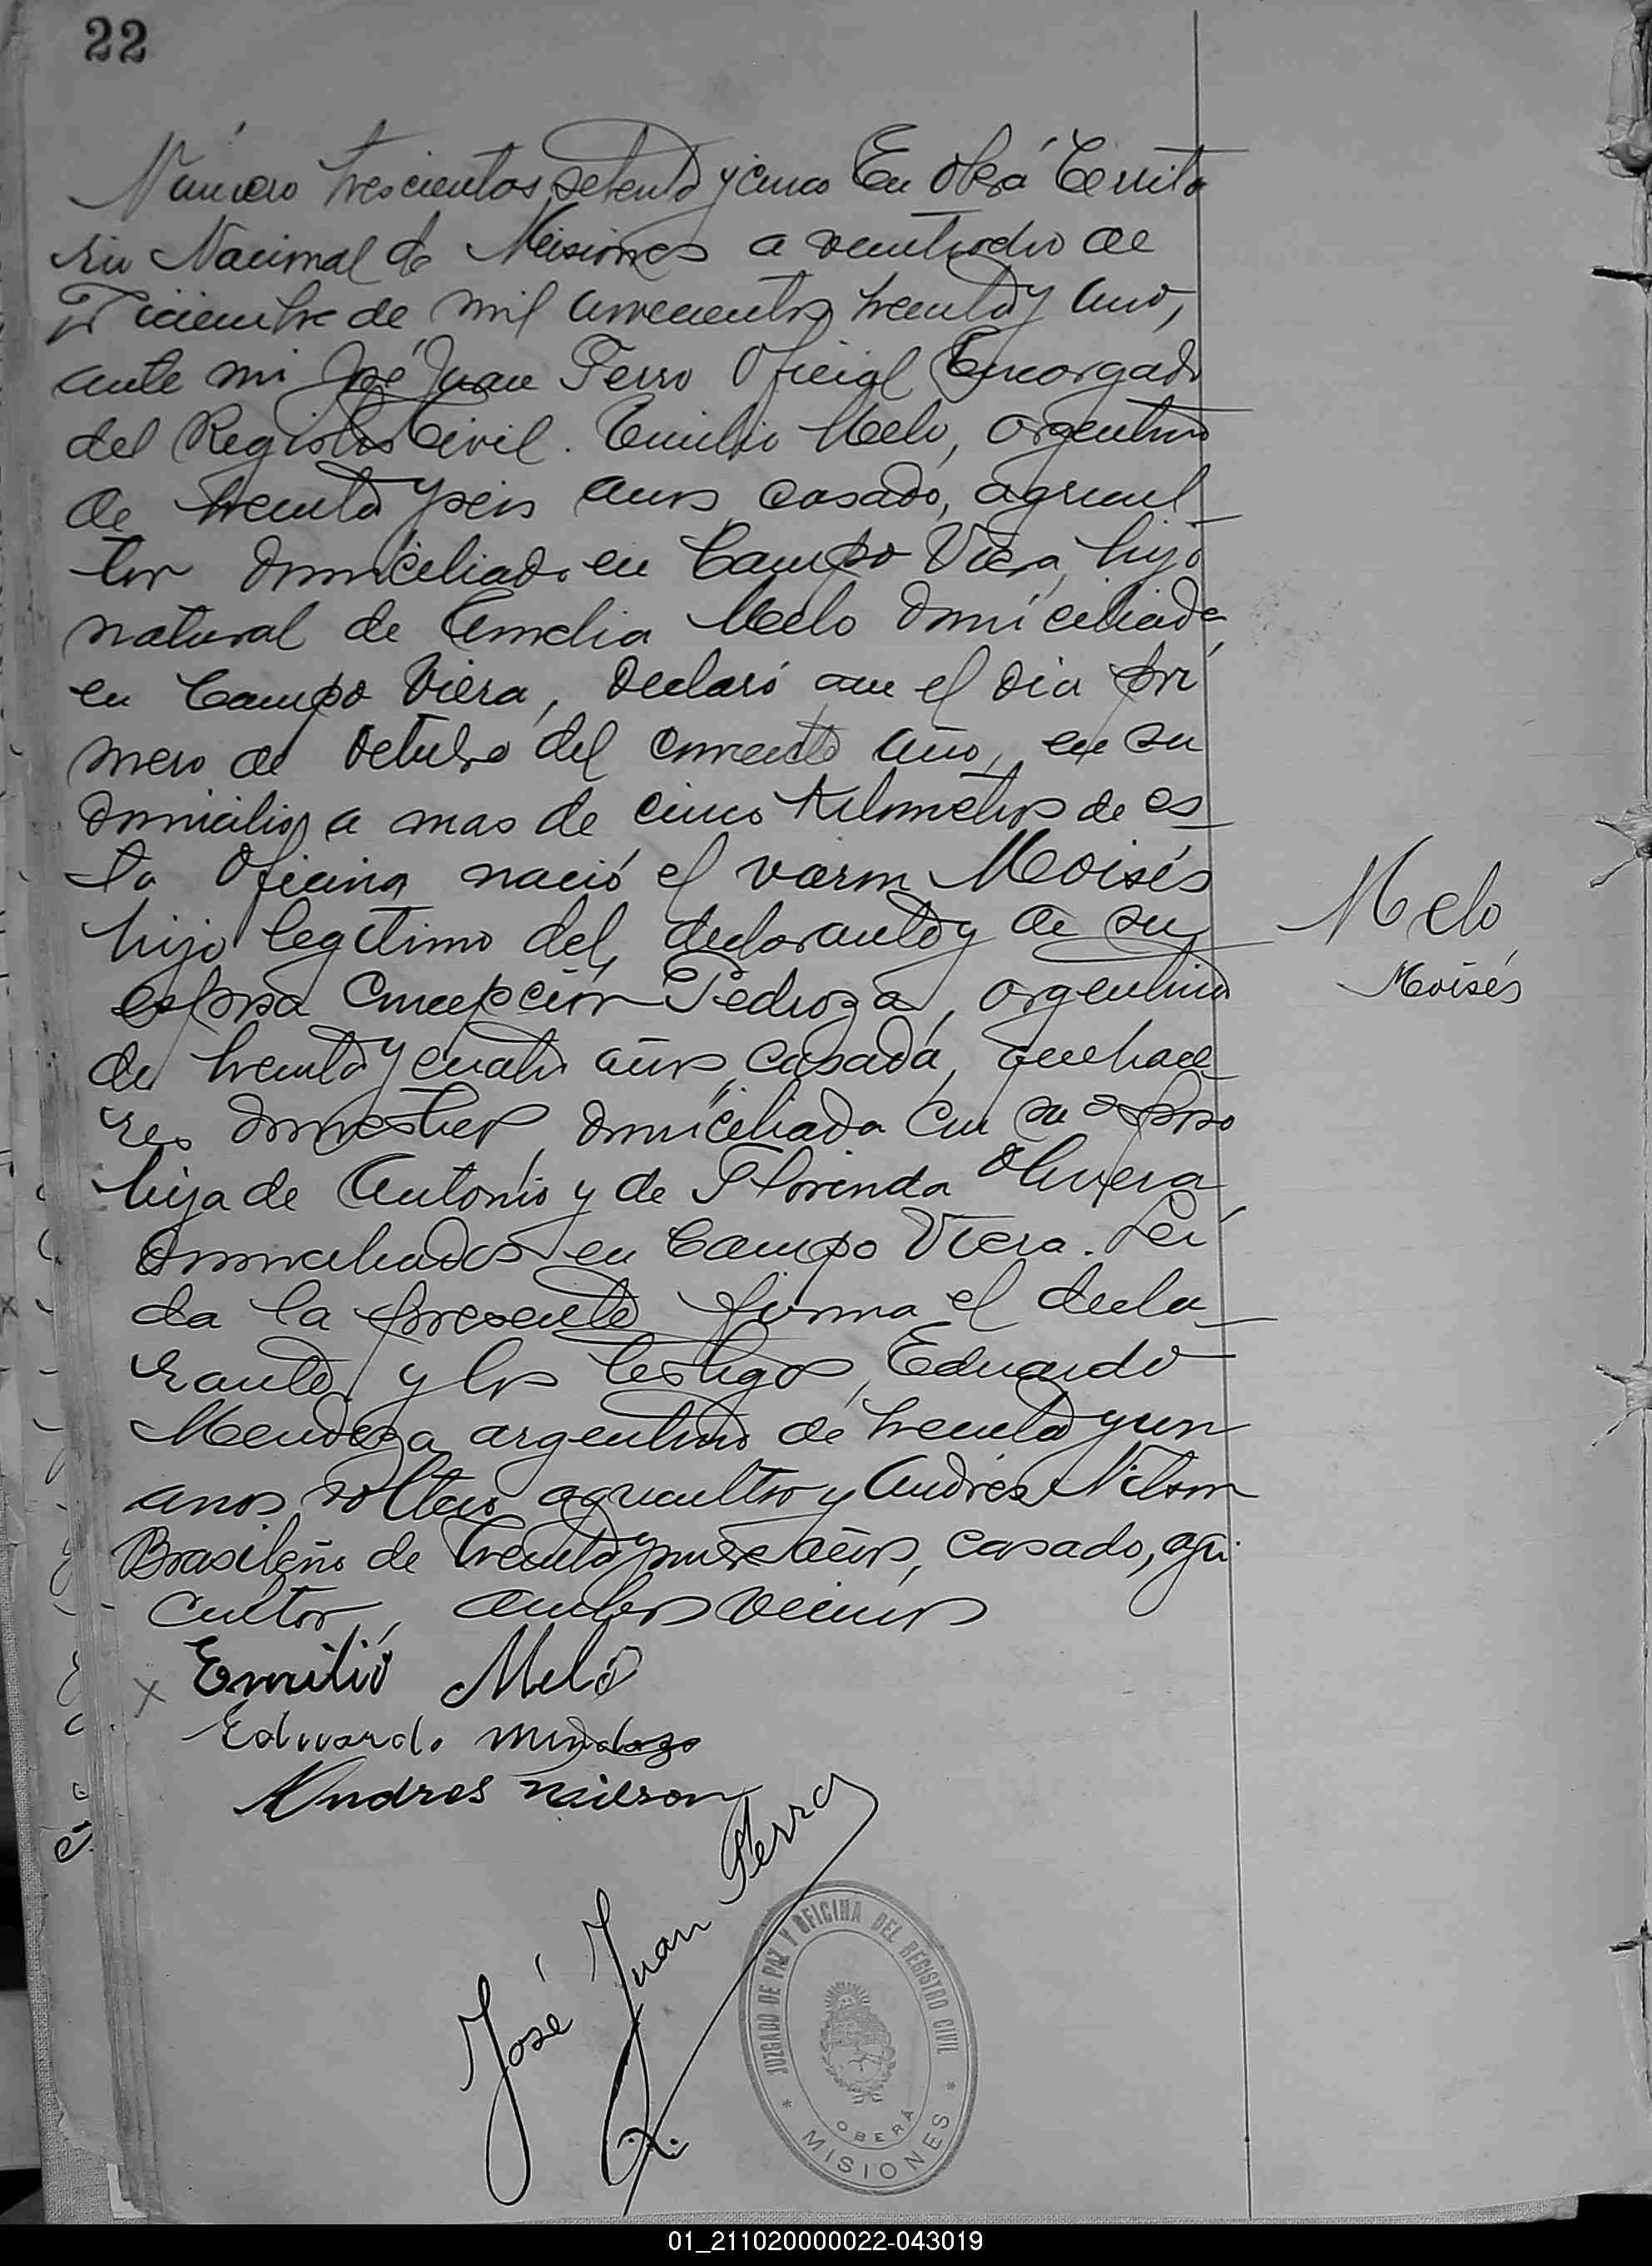 22
Número trescientos setenta y cinco En Oberá Territo
rio Nacional de Misiones a veintiocho de
Diciembre de mil novecientos treinta y uno,
ante mi José Juan Ferro Oficial Encargado
del Registro Civil. Emilio Melo, argentino
de treinta y seis años casado, agricul
tor domiciliado en Campo Viera, hijo
natural de Amelia Melo domiciliada
en Campo Viera, declaró que el dia pri
mero de Octubre del corriente año, en su
domicilio, a mas de cinco kilometros de es
ta Oficina nació el varon Moisés
hijo legítimo del declarante y de su
esposa Concepción Pedroza, argentina
de treinta y cuatro años, casada, quehace
res domesticos, domiciliada con su esposo
hija de Antonio y de Florinda Olivera
domiciliados en Campo Viera. Lei
da la presente firma el decla
rante, y los testigos, Eduardo
Mendoza, argentino de treinta y un
anos soltero, agricultor y Andrés Nilson
Brasileño de treinta y nueve años, casado, agri
cultor, ambos vecinos
Melo
Moisés
x Emilio Melo
Eduardo Mendoza
Andres Nailson
José Juan Ferro
JUZGADO DE PAZ Y OFICINA DEL REGISTRO CIVIL
* OBERÁ *
MISIONES
01_211020000022-043019